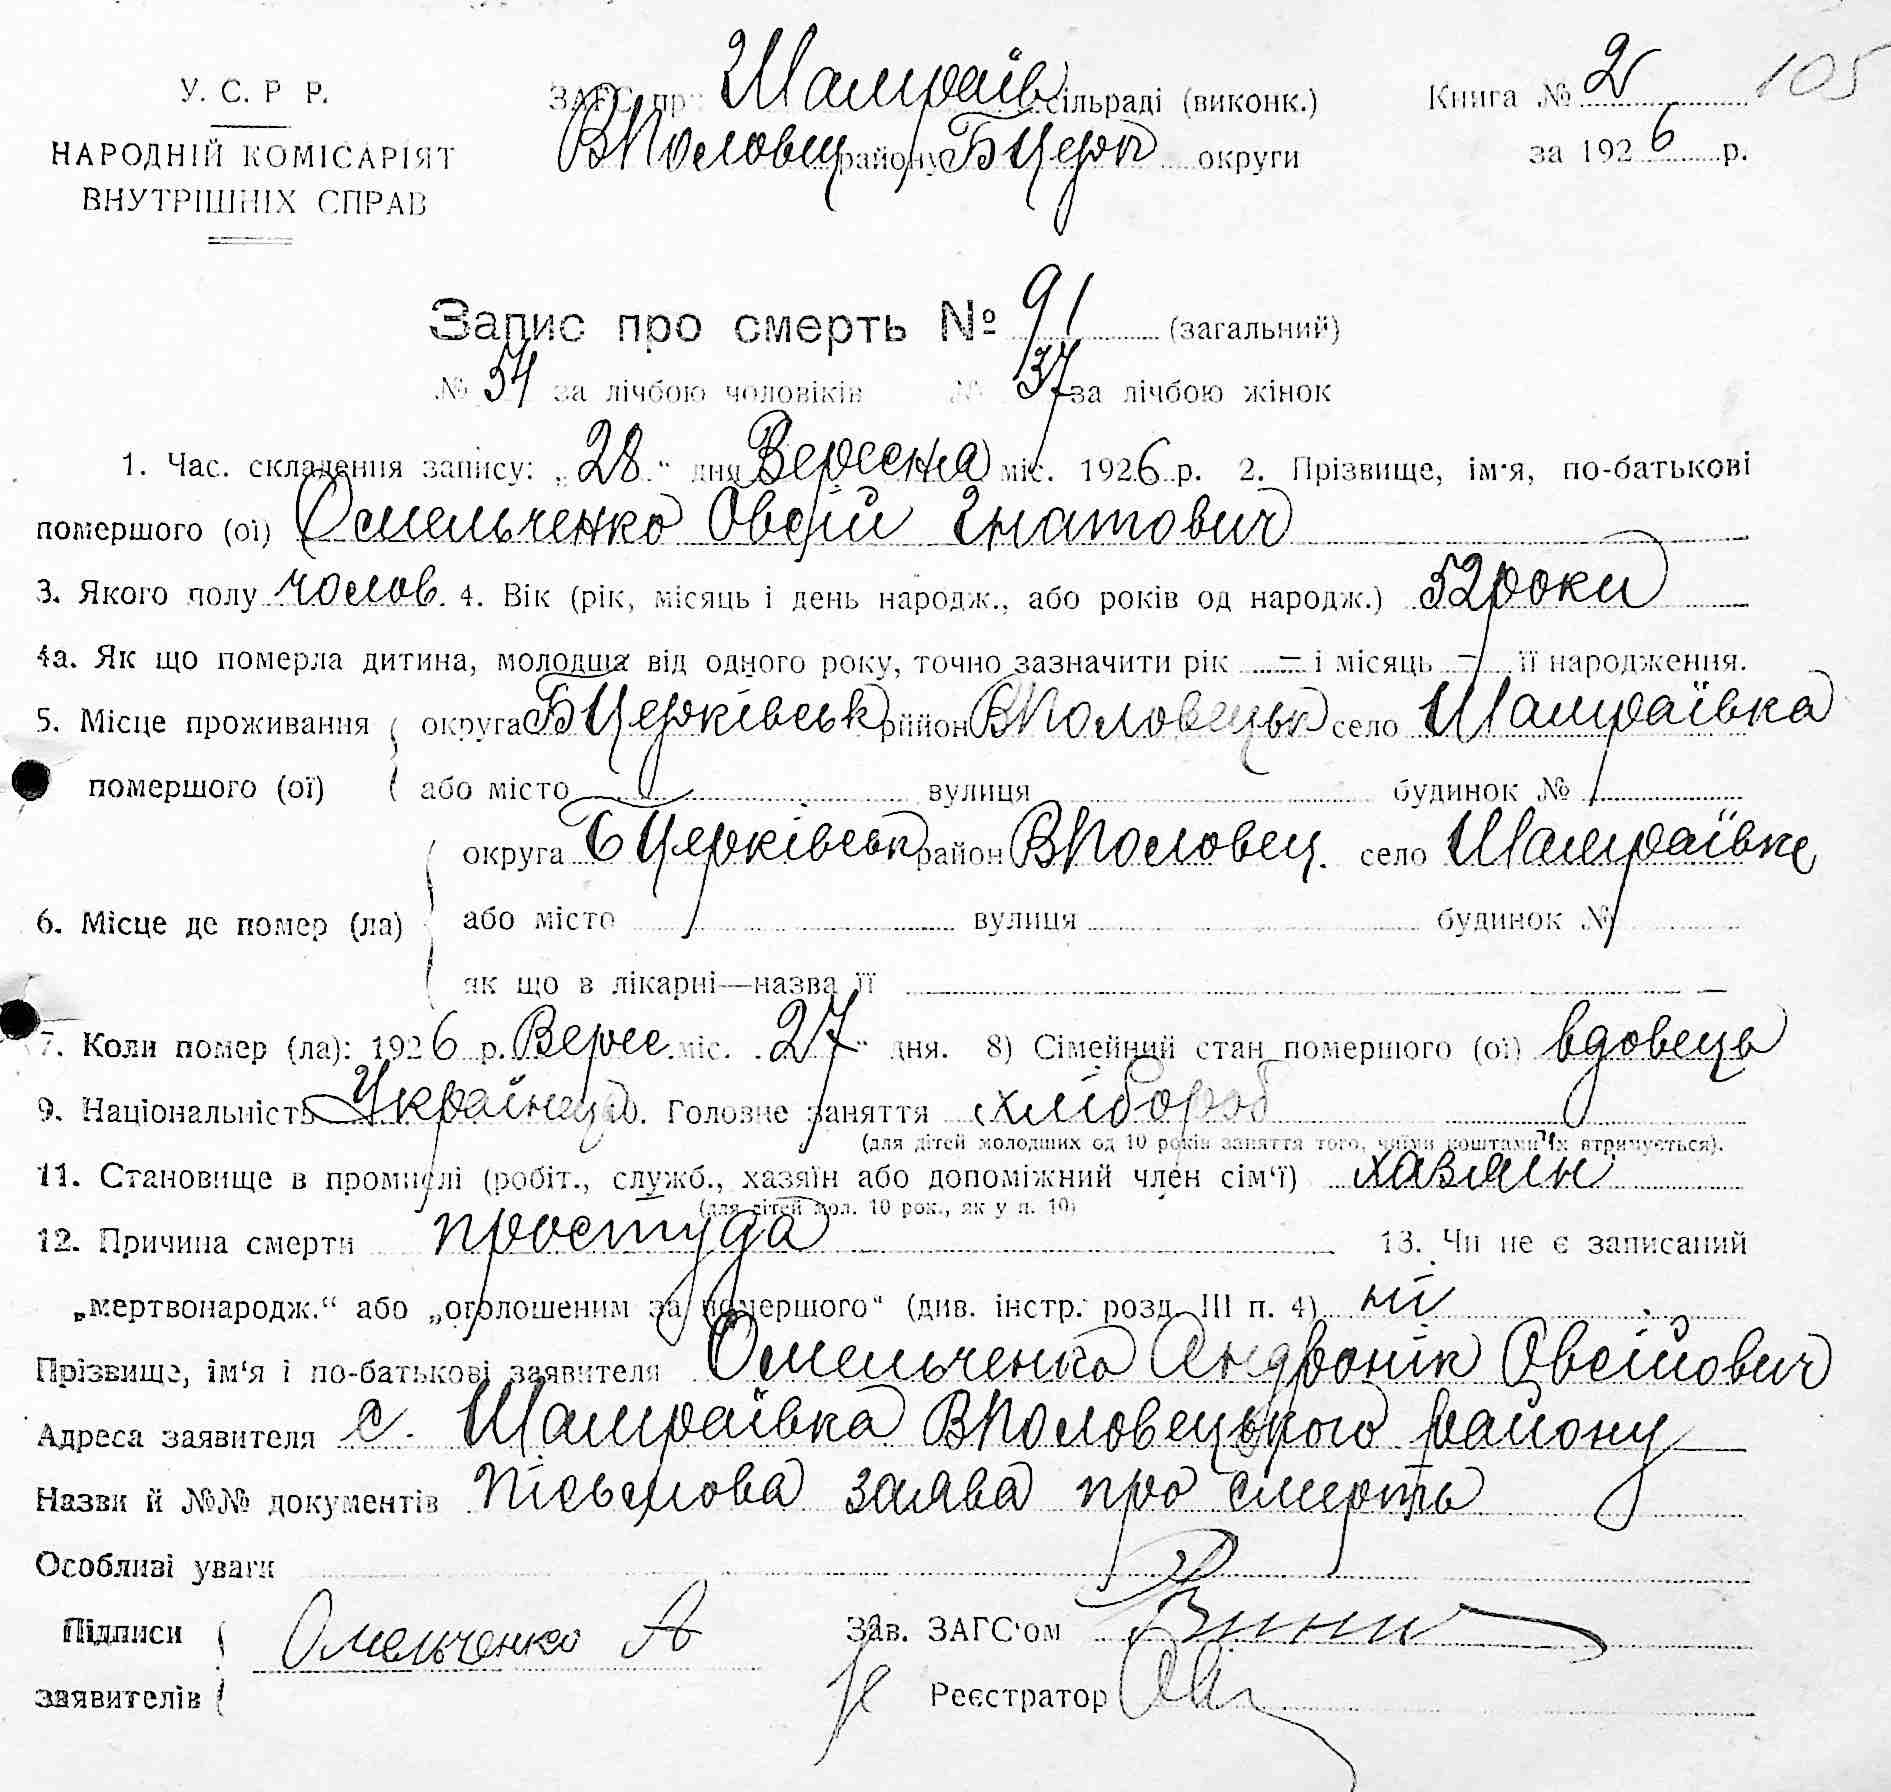 У. С. Р Р.
НАРОДНІЙ КОМІСАРІЯТ
ВНУТРІШНІХ СПРАВ
ЗАГС пр Шамраїв сільраді (виконк.)
ВПоловец району БЦерк округи
Книга № 2 105
за 1926 р.
Запис про смерть № 91 (загальний)
№ 54 за лічбою чоловіків № 37 за лічбою жінок
1. Час. складення запису: „28“ дня Вересня міс. 1926 р. 2. Прізвище, ім'я, по-батькові
помершого (ої) Омельченко Овсій Гнатович
3. Якого полу чолов. 4. Вік (рік, місяць і день народж., або років од народж.) 52 роки
4а. Як що померла дитина, молодша від одного року, точно зазначити рік — і місяць — її народження.
5. Місце проживання округа БЦерківськ район ВПоловецьк село Шамраївка
помершого (ої) або місто вулиця будинок №
округа БЦерківськ район ВПоловец. село Шамраївка
6. Місце де помер (ла) або місто вулиця будинок №
як що в лікарні—назва її
7. Коли помер (ла): 1926 р. Верес. міс. 27 “ дня. 8) Сімейний стан помершого (ої) вдовець
9. Національність Українец 10. Головне заняття хлібороб
(для дітей молодших од 10 років заняття того, чиїми коштами їх втримується).
11. Становище в промислі (робіт., служб., хазяїн або допоміжний член сім'ї) хазяїн
(для дітей мол. 10 рок., як у п. 10)
12. Причина смерти простуда 13. Чи не є записаний
„мертвонародж.“ або „оголошеним за помершого“ (див. інстр. розд. III п. 4) ні
Прізвище, ім'я і по-батькові заявителя Омельченко Андронік Овсійович
Адреса заявителя с. Шамраївка ВПоловецького району
Назви й №№ документів Пісьмова заява про смерть
Особливі уваги
Підписи Омельченко А Зав. ЗАГС'ом
заявителів Реєстратор